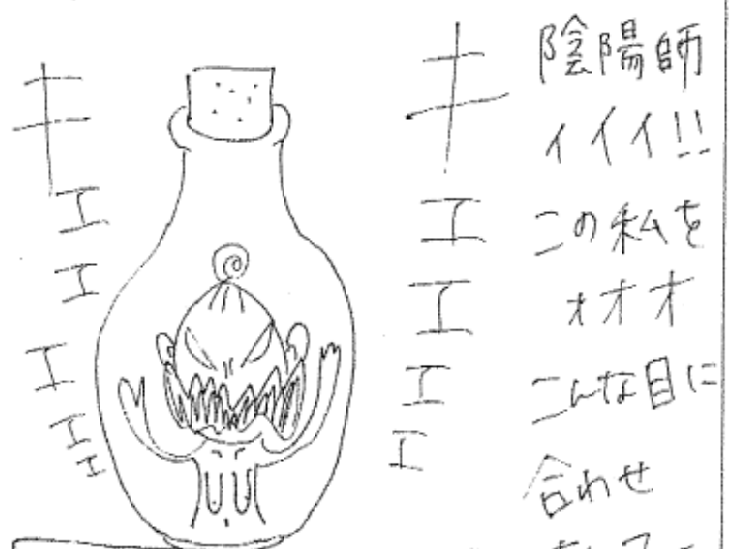 陰陽師
ィイイ!!
この私を
ォオオ
こんな目に
合わせ
キエエエエ
キエエエエエ